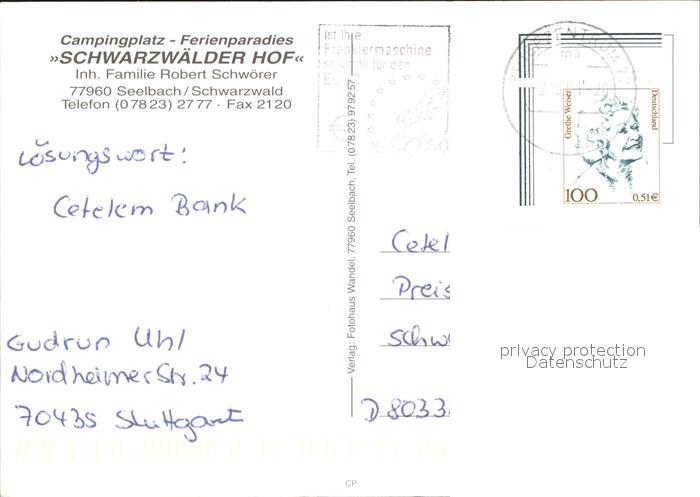 Campingplatz - Ferienparadies
»SCHWARZWÄLDER HOF«
Inh. Familie Robert Schwörer
77960 Seelbach/Schwarzwald
Telefon (07823) 2777 · Fax 2120
Lösungswort:
Cetelem Bank
Gudrun Uhl
Nordheimer Str. 24
70435 Stuttgart
Verlag: Fotohaus Wandel, 77960 Seelbach, Tel. (07823) 979257
ist Ihre
Frankiermaschine
schon fit für den
Grethe Weiser
Deutschland
100
0,51€
Cetel
Preis
Schw
D 8033
privacy protection
Datenschutz
CP